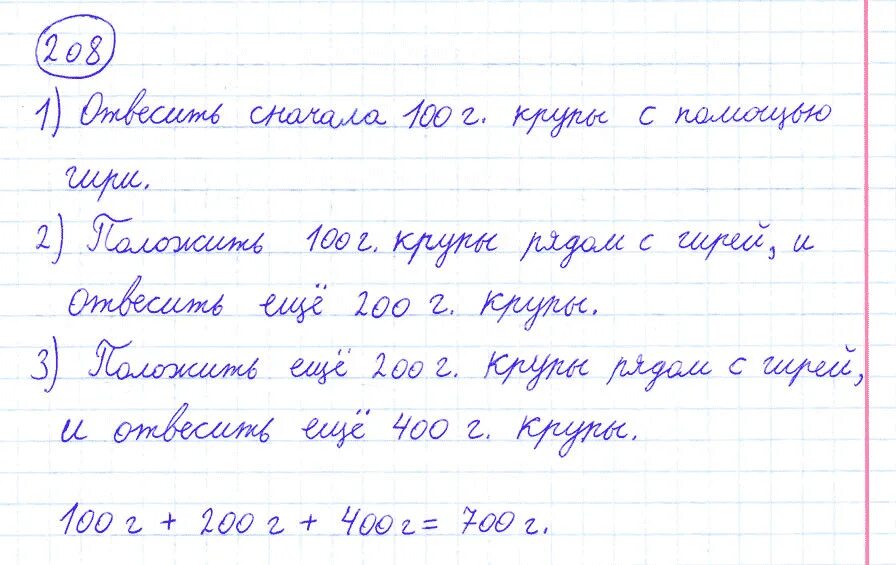 208
1) Отвесить сначала 100 г. крупы с помощью
гири.
2) Положить 100 г. крупы рядом с гирей, и
отвесить ещё 200 г. крупы.
3) Положить ещё 200 г. крупы рядом с гирей,
и отвесить ещё 400 г. крупы.
100 г + 200 г + 400 г = 700 г.